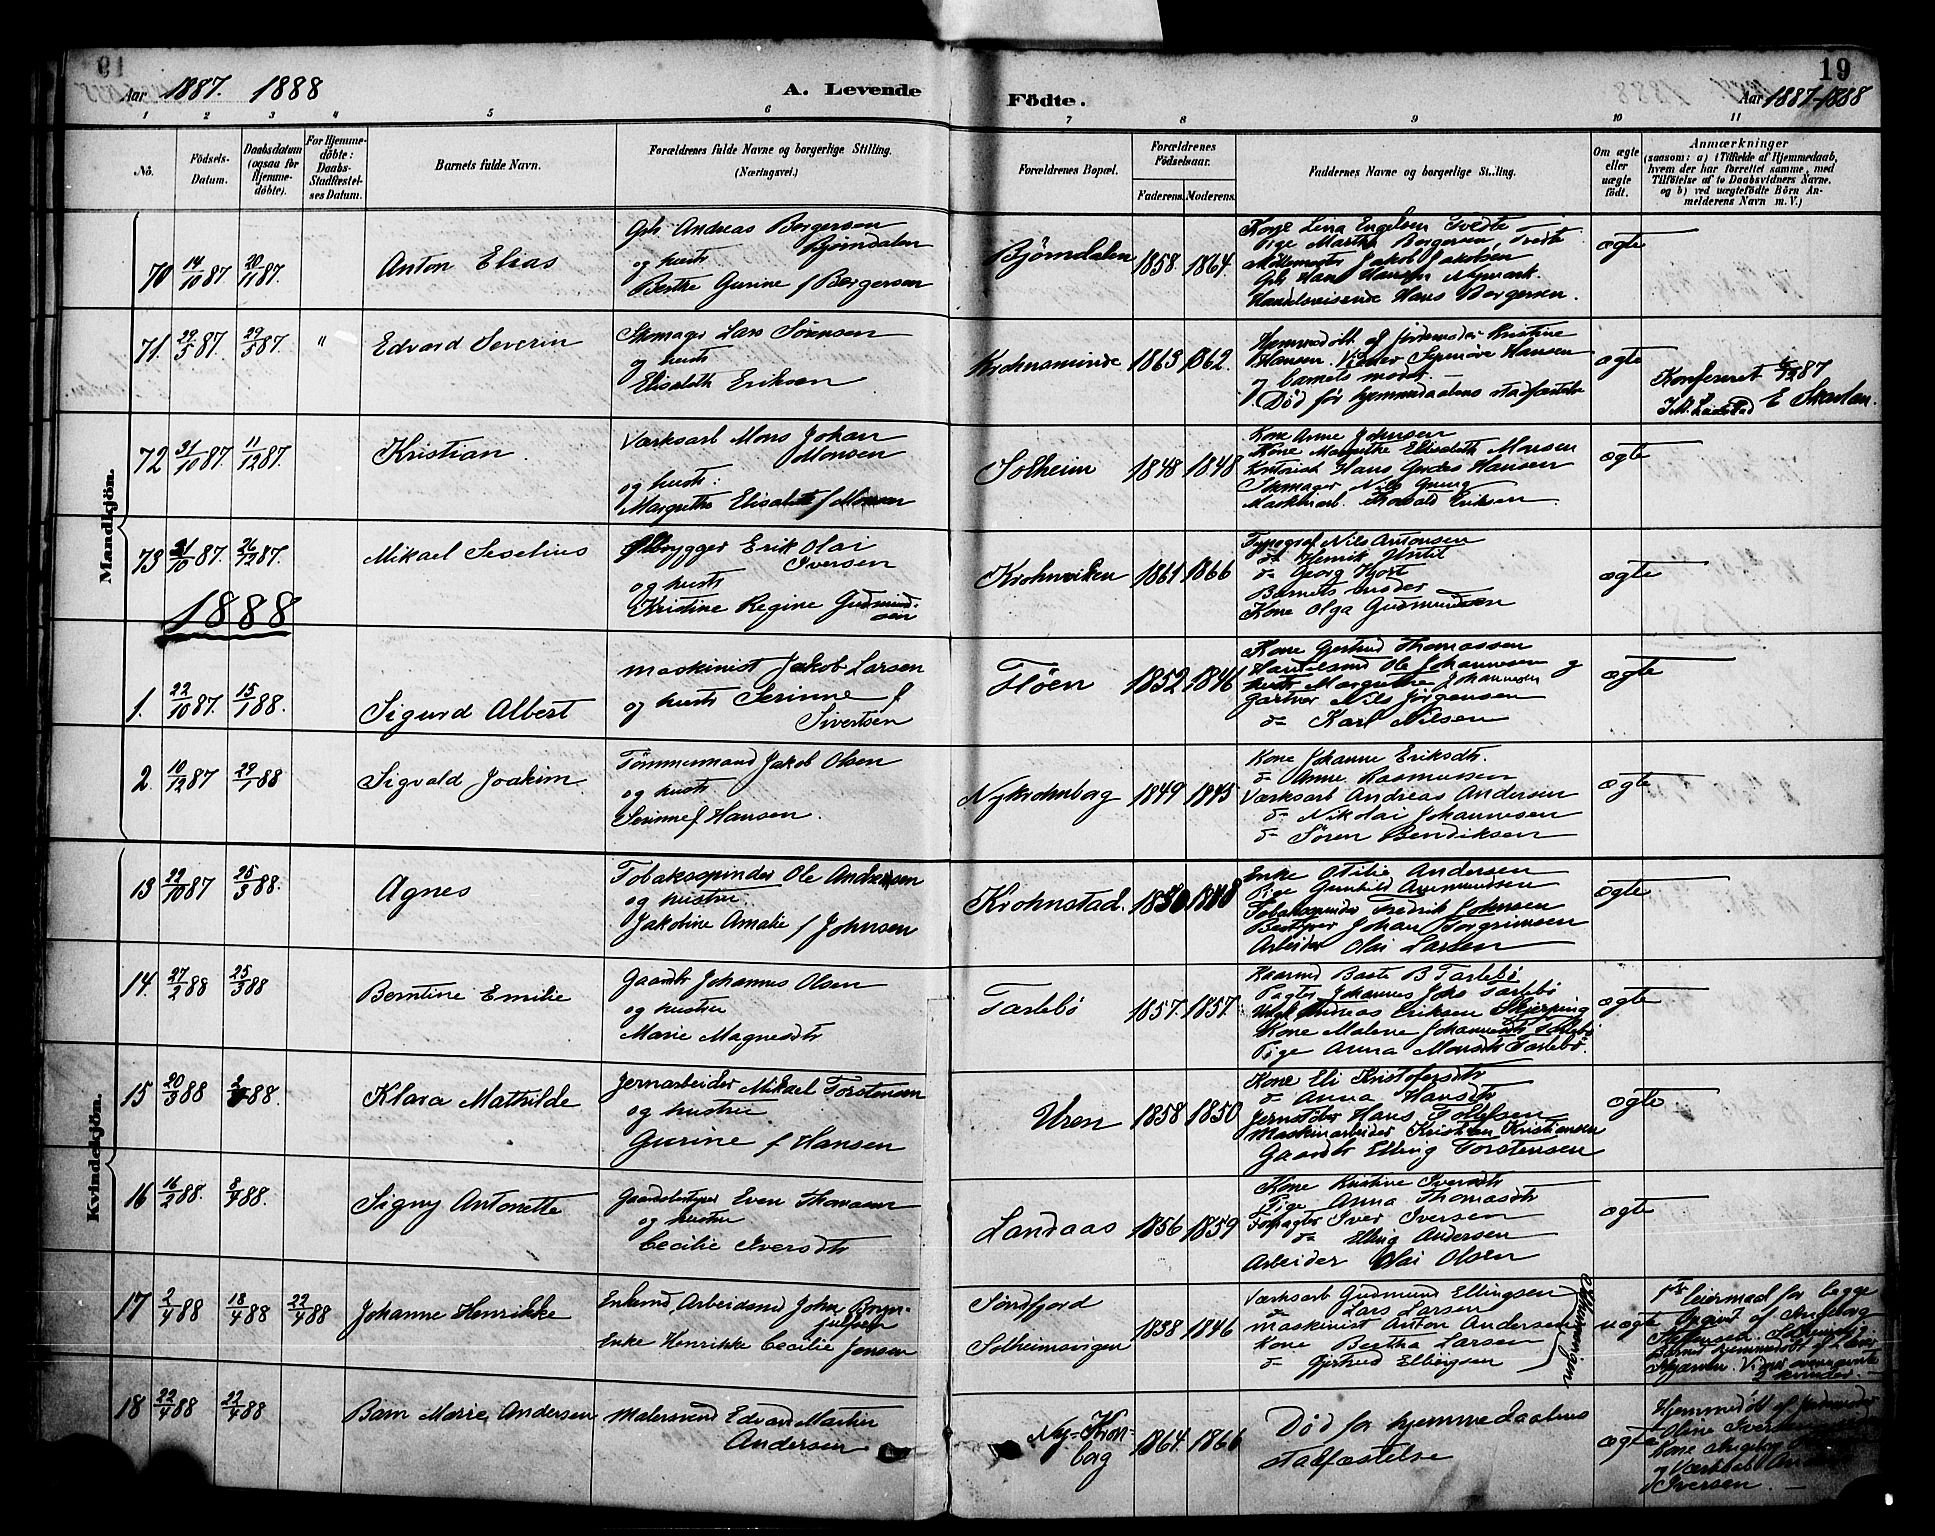 19
Aar 1887. 1888 A. Levende
Födte. Aar 1887-1888
1 2 3 4 5 6 7 8 9 10 11
No.
Födsels-Datum.
Daabsdatum (ogsaa for Hjemme-döbte).
For Hjemme-döbte: Daabs-Stadfæstel-ses Datum.
Barnets fulde Navn.
Forældrenes fulde Navne og borgerlige Stilling. (Næringsvei.)
Forældrenes Bopæl.
Forældrenes Födselsaar.
Faderens. Moderens.
Faddernes Navne og borgerlige Stilling.
Om ægte eller uægte födt.
Anmærkninger
(saasom: a) i Tilfælde af Hjemmedaab,
hvem der har forrettet samme, med
Tilföielse af to Daabsvidners Navne,
og b) ved uægtefödte Börn An-
melderens Navn m. V.)
Mandkjön.
70 14/10 87 20/11 87. Anton Elias
Gb. Andreas Børgersen
Bjørndalen
og hustr
Berthe Gurine f Børgersen
Bjørndalen 1858. 1864.
Kone Lina Engelsen Tvedte
Pige Martha Børgersen, Tvedte
Møllemester Jakob Jakobsen
Gb Hans Hansen Nymark
Handelsreisende Hans Børgersen.
ægte
71 29/5 87. 29/5 87. " Edvard Severin
Skomager Lars Sørensen
og hustr
Elisabeth Eriksen
Krohnsminde 1863 1862.
Hjemmedøbt af Jordemoder Kristine
Hansen. Vidner Hansen
og barnets moder
Død før hjemmedaabens stadfæstelse
ægte
Konfereret 6/12 87
72 31/10 87. 11/12 87. Kristian.
Værksarb Mons Johan
Monsen
og hustr:
Margrethe Elisabeth f Monsen
Solheim 1848 1848
Kone Anne Johnsen
Kone Margrethe Elisabeth Monsen
Kontorist Hans Hansen
Skomager Nils
Maskinarb. Thorvald Eriksen
ægte
73 31/10 87 26/12 87. Mikael Seselius
Ølbrygger Erik Olai
Iversen
og hustr
Kristine Regine Gudmund-
sen
Krohnviken 1861 1866
Typograf Nils Antonsen
do Henrik
do Georg Hjort
Barnets moder
Kone Olga Gudmundsen
ægte
1888
1. 22/10 87. 15/1 88. Sigurd Albert
Maskinist Jakob Larsen
og hustr Serinne f
Sivertsen
Fløen 1852 1846
Kone Gertrud Thomassen
Handelsmd Ole Johannesen og
hustr Margrethe Johannesen
Gartner Nils Jørgensen
do Karl Nilsen
ægte
2. 10/12 87 29/1 88 Sigvald Joakim
Tømmermand Jakob Olsen
og hustr
Serinne f Hansen.
Nykrohnborg 1849 1845
Kone Johanne Eriksdtr.
do Anne Rasmussen
Værksarb Andreas Andersen
do Nikolai Johannesen
do Søren Bendiksen
ægte
Kvindekjön.
13 22/10 87 25/3 88. Agnes
Tobaksspinder Ole Andersen
og hustru.
Jakobine Amalie f Johnsen
Krohnstad. 1850 1848
Enke Otilie Andersen
Pige Gunhild Aamundsen
Tobakspinder Fredrik Johnsen
Bestyrer Johan Torgrimsen
Arbeider Olai Larsen
ægte
14. 27/2 88 25/3 88 Berntine Emilie
Gaardbr Johannes Olsen
og hustru
Marie Magnesdtr
Tarlebø 1857. 1857.
Kaarmd Baste B Tarlebø
Pagter Johannes Johs Tarlebø
Andreas Eriksen Skjerping
Kone Malene Johannesdtr Tarlebø
Pige Anna Monsdtr Tarlebø.
ægte
15 20/3 88 2/4 88. Klara Mathilde
Jernarbeider Mikael Torstensen
og hustru
Gurine f Hansen
Uren 1858 1850
Kone Eli Kristofersdtr
do Anna Hansdtr
Jernstøber Hans Tollefsen
Maskinarbeider Kristian Kristiansen
Gaardbr Elling Torstensen
ægte
16 16/2 88. 8/4 88. Signy Antonette
Gaardsbestyrer Even Thomasen
og hustru
Cecilie Iversdtr
Landaas 1856 1859
Kone Kristine Iversdtr
Pige Anna Thomasdtr
Forpagter Iver Iversen
do Elling Andersen
Arbeider Olai Olsen
ægte
17 2/4 88 18/4 88 22/4 88 Johanne Henrikke
Enkemd, Arbeidsmd John Bryn-
julfsen
Enke Henrikke Cecilie Jonsen
Søndfjord
Solheimsvigen 1838 1846
Værksarb Gudmund Ellingsen
do Lars Larsen
Maskinist Anton Andersen
Kone Bertha Larsen
do Gjertrud Ellingsen
Solheimsvigen
uægte
1ste leiermaal for begge
18 22/4 88 22/4 88 Barn Marie Andersen
Malersvend Edvard Martin
Andersen
Ny-Kron-
borg 1864. 1866
Død før hjemmedaabens
stadfæstelse
ægte
Hjemmedøbt af Jordmoder
Oline Iversen
Iversen.